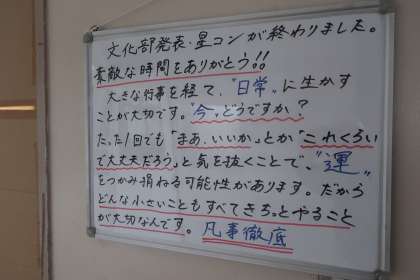 文化部発表・星コンが終わりました。
素敵な時間をありがとう!!
大きな行事を経て、"日常"に生かす
ことが大切です。"今"どうですか?
たった1回でも「まあ、いいか」とか「これくらい
で大丈夫だろう」と気を抜くことで、"運"
をつかみ損ねる可能性があります。だから
どんな小さいこともすべてきちっとやること
が大切なんです。凡事徹底